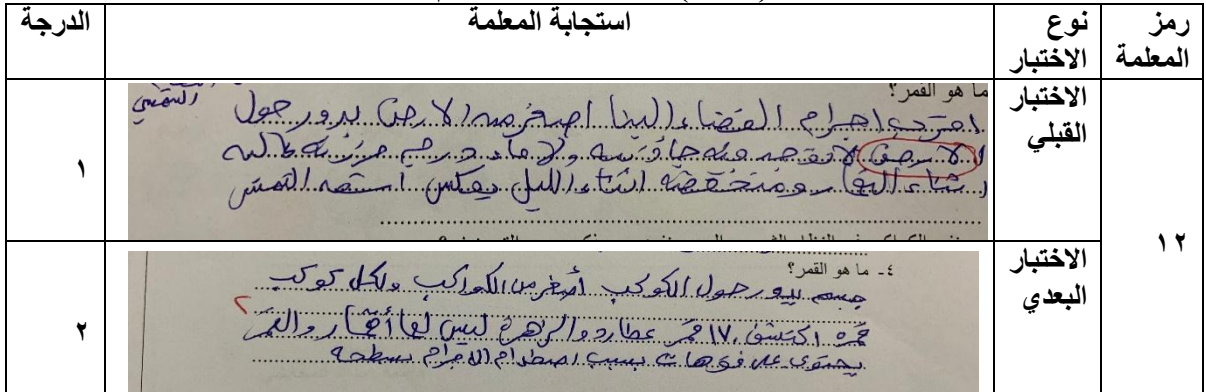 رمز المعلمة نوع الاختبار استجابة المعلمة الدرجة
١٢
الاختبار القبلي
ما هو القمر؟
اقرب اجرام الفضاء الينا اصغر من الارض يدور حول
الارض لا توجد فيه جاذبيه ولا ماء درجه حرارته عاليه
اثناء النهار ومنخفضه اثناء الليل يعكس اشعه الشمس
١
الاختبار البعدي
٤- ما هو القمر؟
جسم يدور حول الكوكب أصغر من الكواكب ولكل كوكب
قمره اكتشف ١٧ قمر عطارد والزهرة ليس لها أقمار والقمر
يحتوي على فوهات بسبب اصطدام الاجرام بسطحه
٢
٢